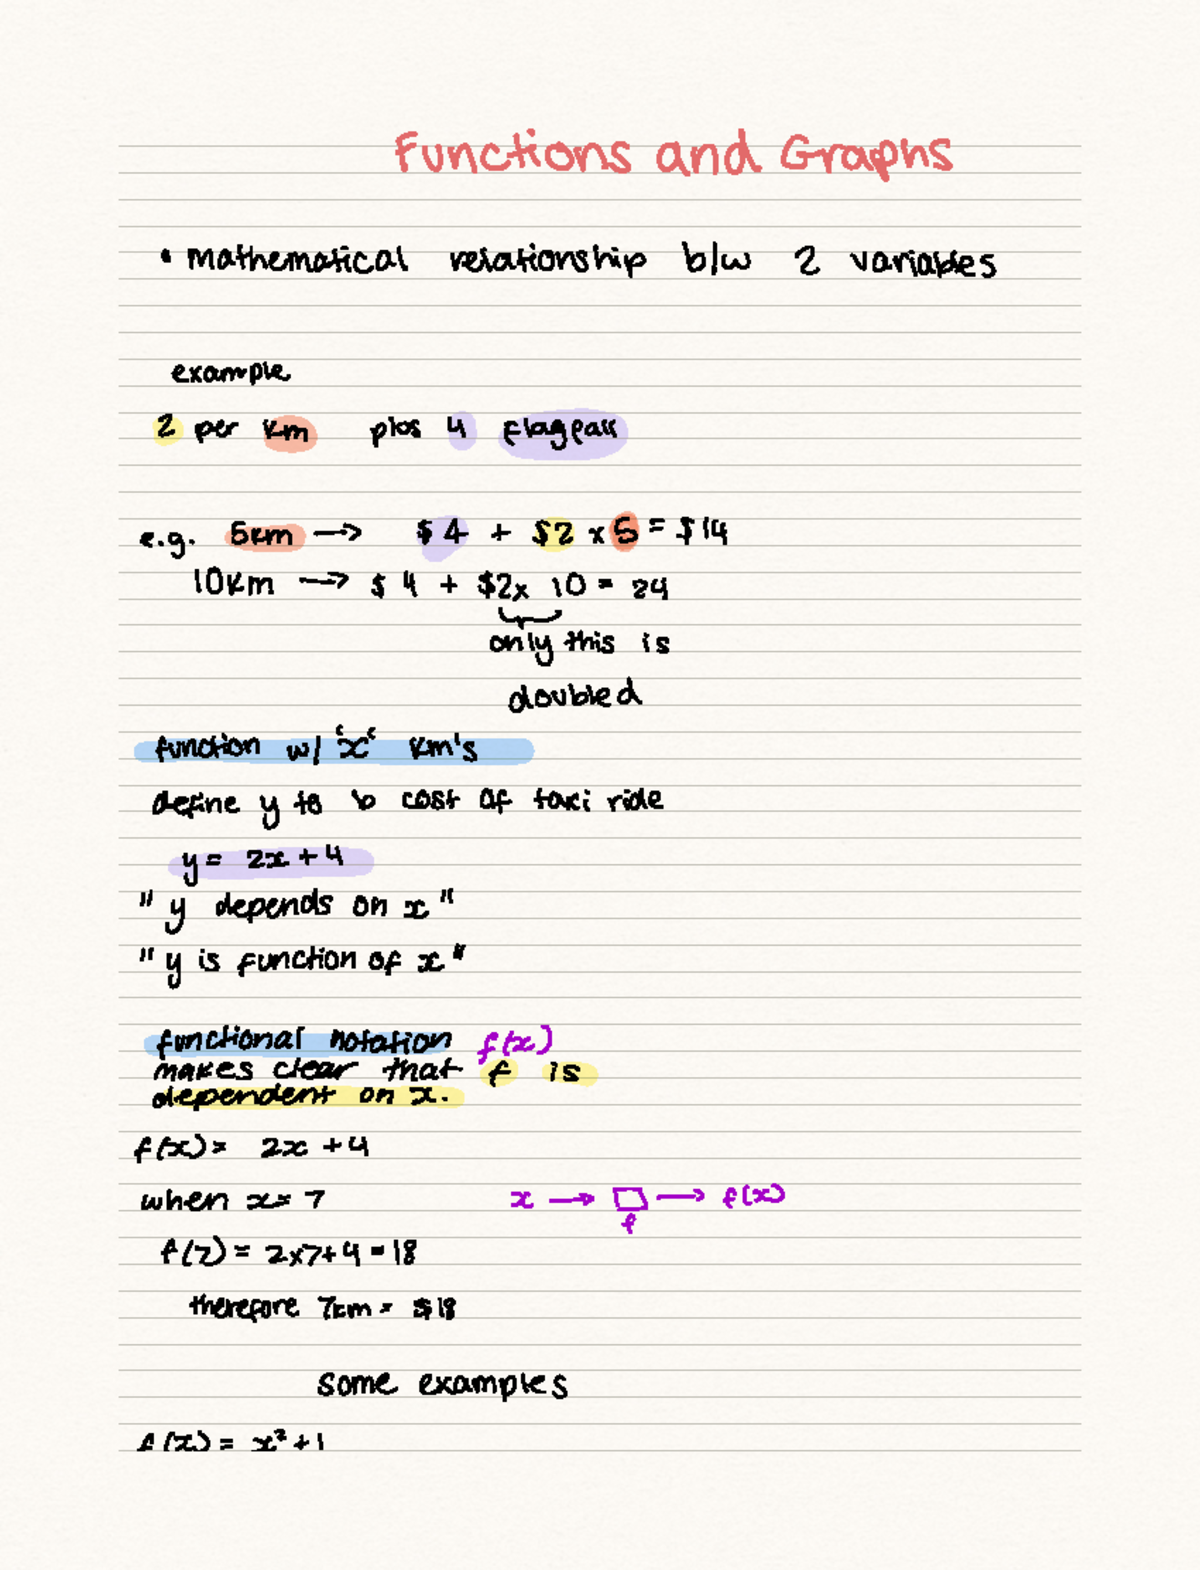 Functions and Graphs
• mathematical relationship b/w 2 variables
example
2 per km plus 4 flagfall
e.g. 5km → $4 + $2 x 5 = $14
10km → $4 + $2x 10 = 24
only this is
doubled
function w/ 'x' km's
define y to b cost of taxi ride
y = 2x + 4
" y depends on x "
" y is function of x "
functional notation f(x)
makes clear that f is
dependent on x.
f(x) = 2x + 4
when x = 7
x → □ → f(x)
f
f(7) = 2x7+4 = 18
therefore 7km = $18
some examples
f(x) = x² + 1